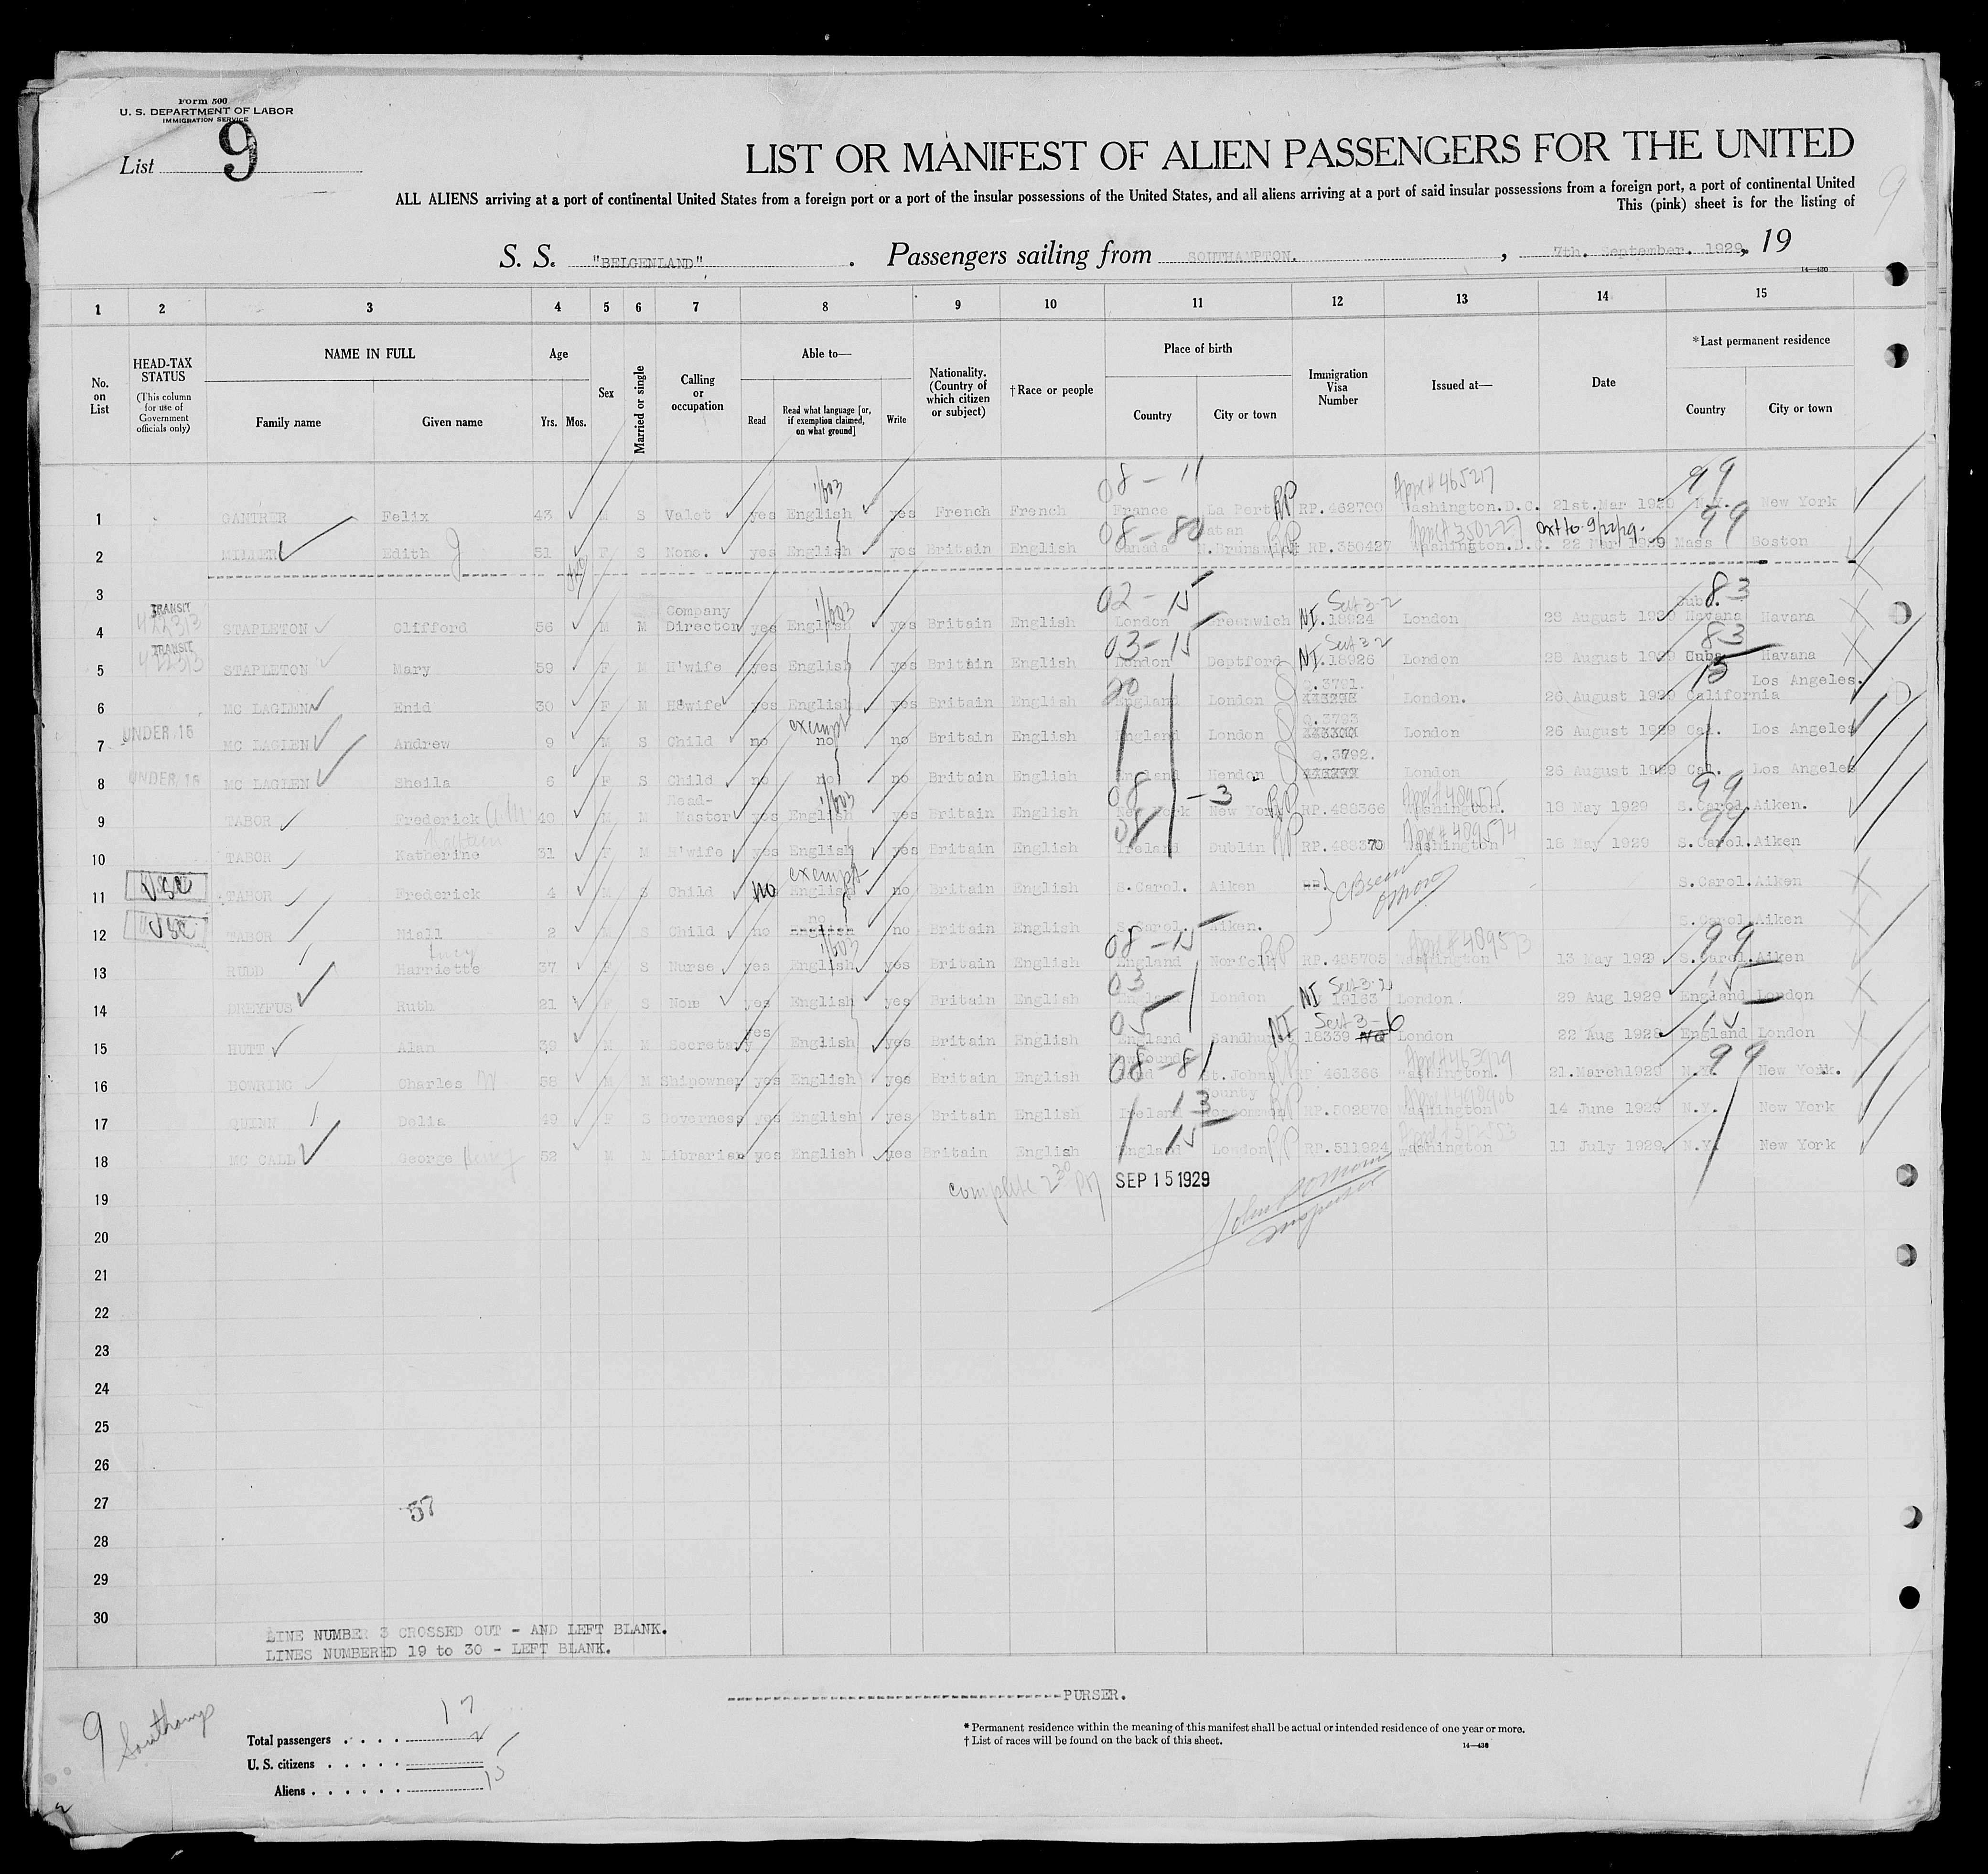 Form 500
U. S. DEPARTMENT OF LABOR
IMMIGRATION SERVICE
List 9
LIST OR MANIFEST OF ALIEN PASSENGERS FOR THE UNITED
ALL ALIENS arriving at a port of continental United States from a foreign port or a port of the insular possessions of the United States, and all aliens arriving at a port of said insular possessions from a foreign port, a port of continental United
This (pink) sheet is for the listing of
9
S. S. "BELGENLAND". Passengers sailing from SOUTHAMPTON. , 7th. September. 1929, 19
14—430
1 2 3 4 5 6 7 8 9 10 11 12 13 14 15
No. on List
HEAD-TAX STATUS
(This column for use of Government officials only)
NAME IN FULL
Family name Given name
Age
Yrs. Mos.
Sex
Married or single
Calling or occupation
Able to—
Read
Read what language [or, if exemption claimed, on what ground]
Write
Nationality. (Country of which citizen or subject)
†Race or people
Place of birth
Country City or town
Immigration Visa Number
Issued at—
Date
*Last permanent residence
Country City or town
08 - 11 Appr# 465217 99
1 GANTNER Felix 43 M S Valet yes English yes French French France La Pert RP RP.462700 Washington.D.C. 21st.Mar 1929 N.Y. New York
08 - 80 ext to 9/22/29. 99
2 MILNER Edith J 51 F S None. yes English yes Britain English Canada N.Brunswick RP.350427 Washington.D.C. 22 Mar 1929 Mass Boston
3
TRANSIT 02 - 15 83
4 STAPLETON Clifford 56 M M Company Director yes English yes Britain English London Greenwich NI.18924 London 28 August 1929 Cuba. Havana Havana
TRANSIT 03-15 83
5 STAPLETON Mary 59 F M H'wife yes English yes Britain English London Deptford NI.18926 London 28 August 1929 Cuba Havana
6 MC LAGLEN Enid 30 F M H'wife yes English yes Britain English England London Q.3791. London. 26 August 1929 California Los Angeles.
UNDER 16 exempt
7 MC LAGLEN Andrew 9 M S Child no no no Britain English England London Q.3793 London 26 August 1929 Cal. Los Angeles
UNDER 16
8 MC LAGLEN Sheila 6 F S Child no no no Britain English England Hendon Q.3792. London 26 August 1929 Cal. Los Angeles
08 - 3 99
9 TABOR Frederick 40 M M Head-Master yes English yes Britain English New York New York RP RP.488366 Washington. 18 May 1929 S.Carol. Aiken.
08 99
10 TABOR Katherine 31 F M H'wife yes English yes Britain English Ireland Dublin RP RP.488370 Washington 16 May 1929 S.Carol. Aiken
USC exempt
11 TABOR Frederick 4 M S Child no English no Britain English S.Carol. Aiken RP. S.Carol. Aiken
USC
12 TABOR Niall 2 M S Child no no English no Britain English S.Carol. Aiken. S.Carol. Aiken
08 - 15 Appr# 489573 99
13 RUDD Lucy Harriette 37 F S Nurse yes English yes Britain English England Norfolk RP RP.485705 Washington 13 May 1929 S.Carol. Aiken
03 15
14 DREYFUS Ruth 21 F S None yes English yes Britain English England London NI 19163 London. 29 Aug 1929 England London
05 Sect 3-6 15
15 HUTT Alan 39 M M Secretary yes English yes Britain English England Sandhurst NI 18339 London 22 Aug 1928 England London
08-81 99
16 BOWRING Charles W 58 M M Shipowner yes English yes Britain English Newfoundland St.Johns RP 461366 Washington. 21.March1929 N.Y. New York.
13
17 QUINN Delia 49 F S Governess yes English yes Britain English Ireland County Roscommon RP RP.502870 Washington 14 June 1929 N.Y. New York
15
18 MC CALL George Henry 52 M M Librarian yes English yes Britain English England London RP RP.511924 Washington 11 July 1929 N.Y. New York
complete 2 30 PM SEP 15 1929
Inspector
19
20
21
22
23
24
25
26
27
57
28
29
30
LINE NUMBER 3 CROSSED OUT - AND LEFT BLANK.
LINES NUMBERED 19 to 30 - LEFT BLANK.
PURSER.
9 Southamp
Total passengers . . . . 17
U. S. citizens . . . . . 2
Aliens . . . . . . 15
* Permanent residence within the meaning of this manifest shall be actual or intended residence of one year or more.
† List of races will be found on the back of this sheet.
14—430